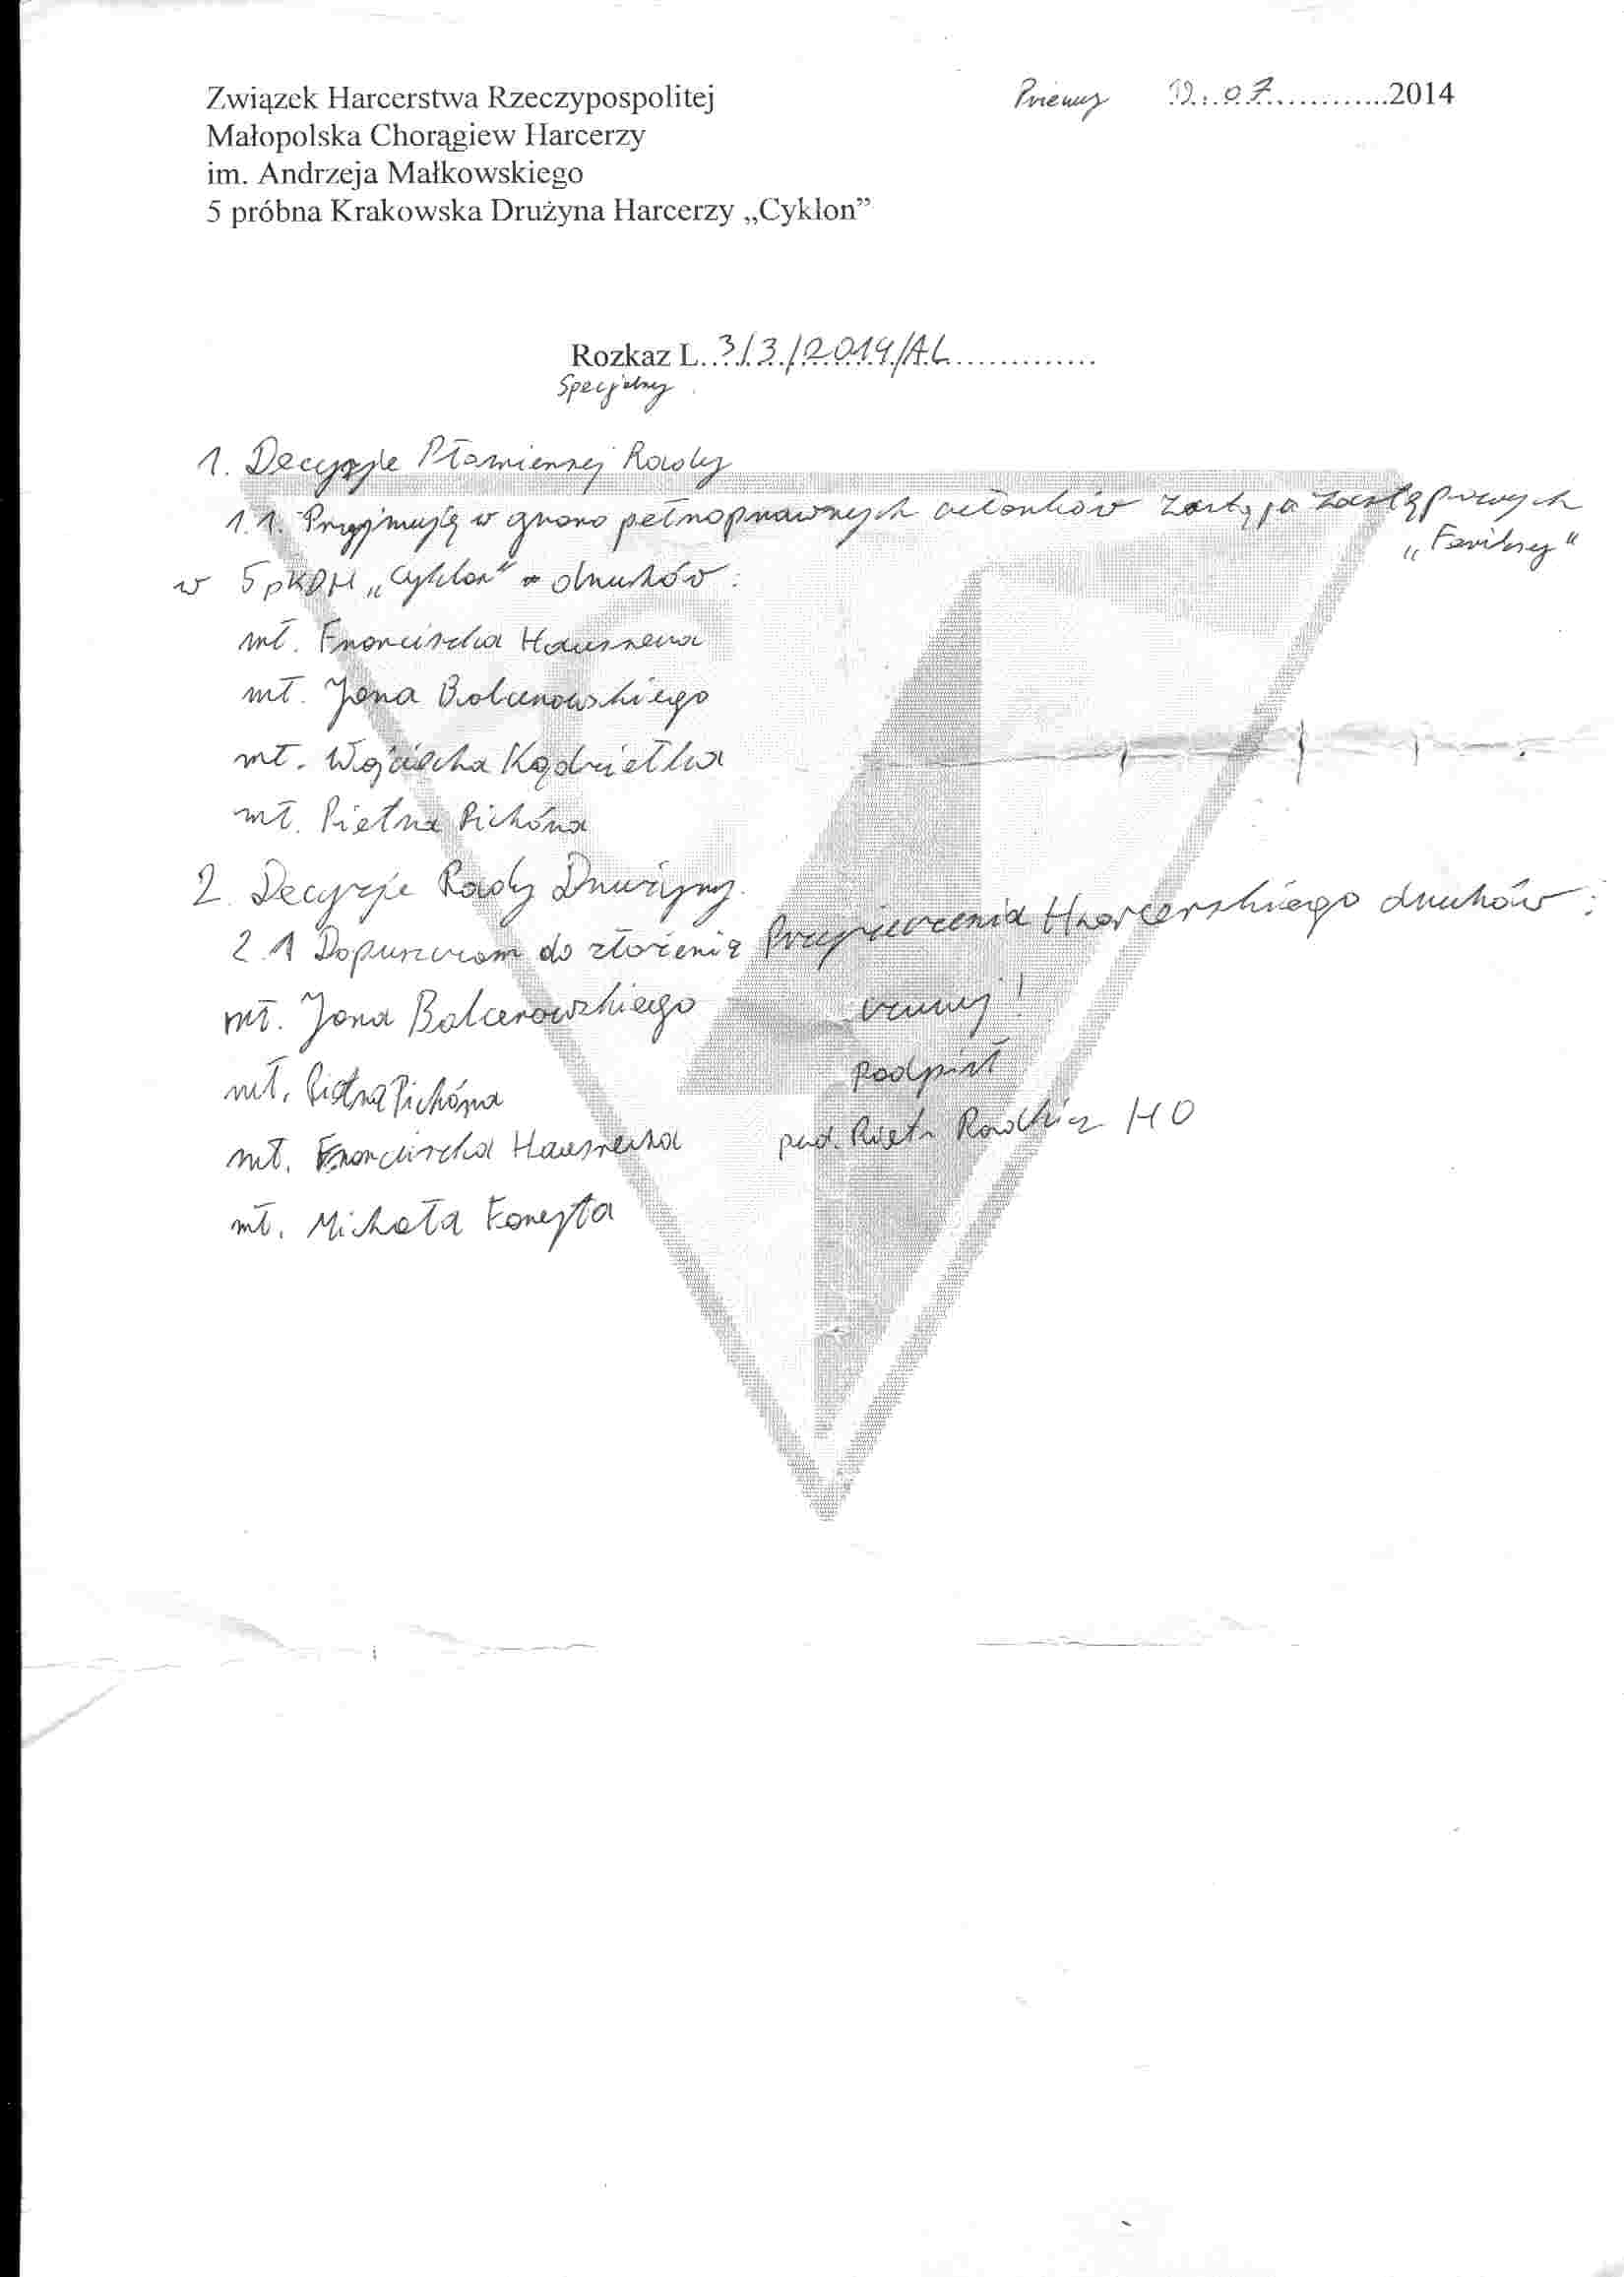 Związek Harcerstwa Rzeczypospolitej
Małopolska Chorągiew Harcerzy
im. Andrzeja Małkowskiego
5 próbna Krakowska Drużyna Harcerzy „Cyklon”
07 2014
Rozkaz L. 3/3/2014/AL
Specjalny
1. Decyzje Płomiennej Rady
1.1. Przyjmuję w grono pełnoprawnych członków Zastępu Zastępowych
w 5pKDH „Cyklon” druhów:
mł. Franciszka Hausnera
mł. Jana Balcerowskiego
mł. Wojciecha Kądziełka
mł. Piotra Pichóra
2. Decyzje Rady Drużyny.
2.1 Dopuszczam do złożenia Przyrzeczenia Harcerskiego druhów:
mł. Jana Balcerowskiego
mł. Piotra Pichóra
mł. Franciszka Hausnera
mł. Michała
czuwaj!
podpisał
pwd. Piotr HO